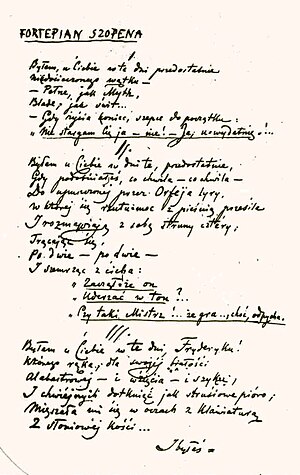 FORTEPIAN SZOPENA
I
Byłem u Ciebie w te dni przedostatnie
Niedocieczonego wątku —
— Pełne, jak Myth,
Blade, jak świt...
— Gdy życia koniec szepce do początku:
„Nie stargam Cię ja — nie! — Ja, uwydatnię!...
II.
Byłem u Ciebie w dni te, przedostatnie,
Gdy podobniałeś, co chwila — co chwila —
Do upuszczonej przez Orfeja liry,
W której się rzutu-moc z pieśnią przesila
I rozmawiają z sobą struny cztéry,
Trącając się,
Po dwie — po dwie —
I szemrząc z cicha:
„Zacząłże on
„Uderzać w ton?...
„Czy taki Mistrz!... że gra... choć, odpycha.
III.
Byłem u Ciebie w te dni, Fryderyku!
Którego ręka, dla swojéj białości
Alabastrowej — i wzięcia — i szyku,
I chwiejnych dotknięć jak strusiowe pióro,
Mięszała mi się w oczach z klawiaturą
Z słoniowej kości...
I byłeś =